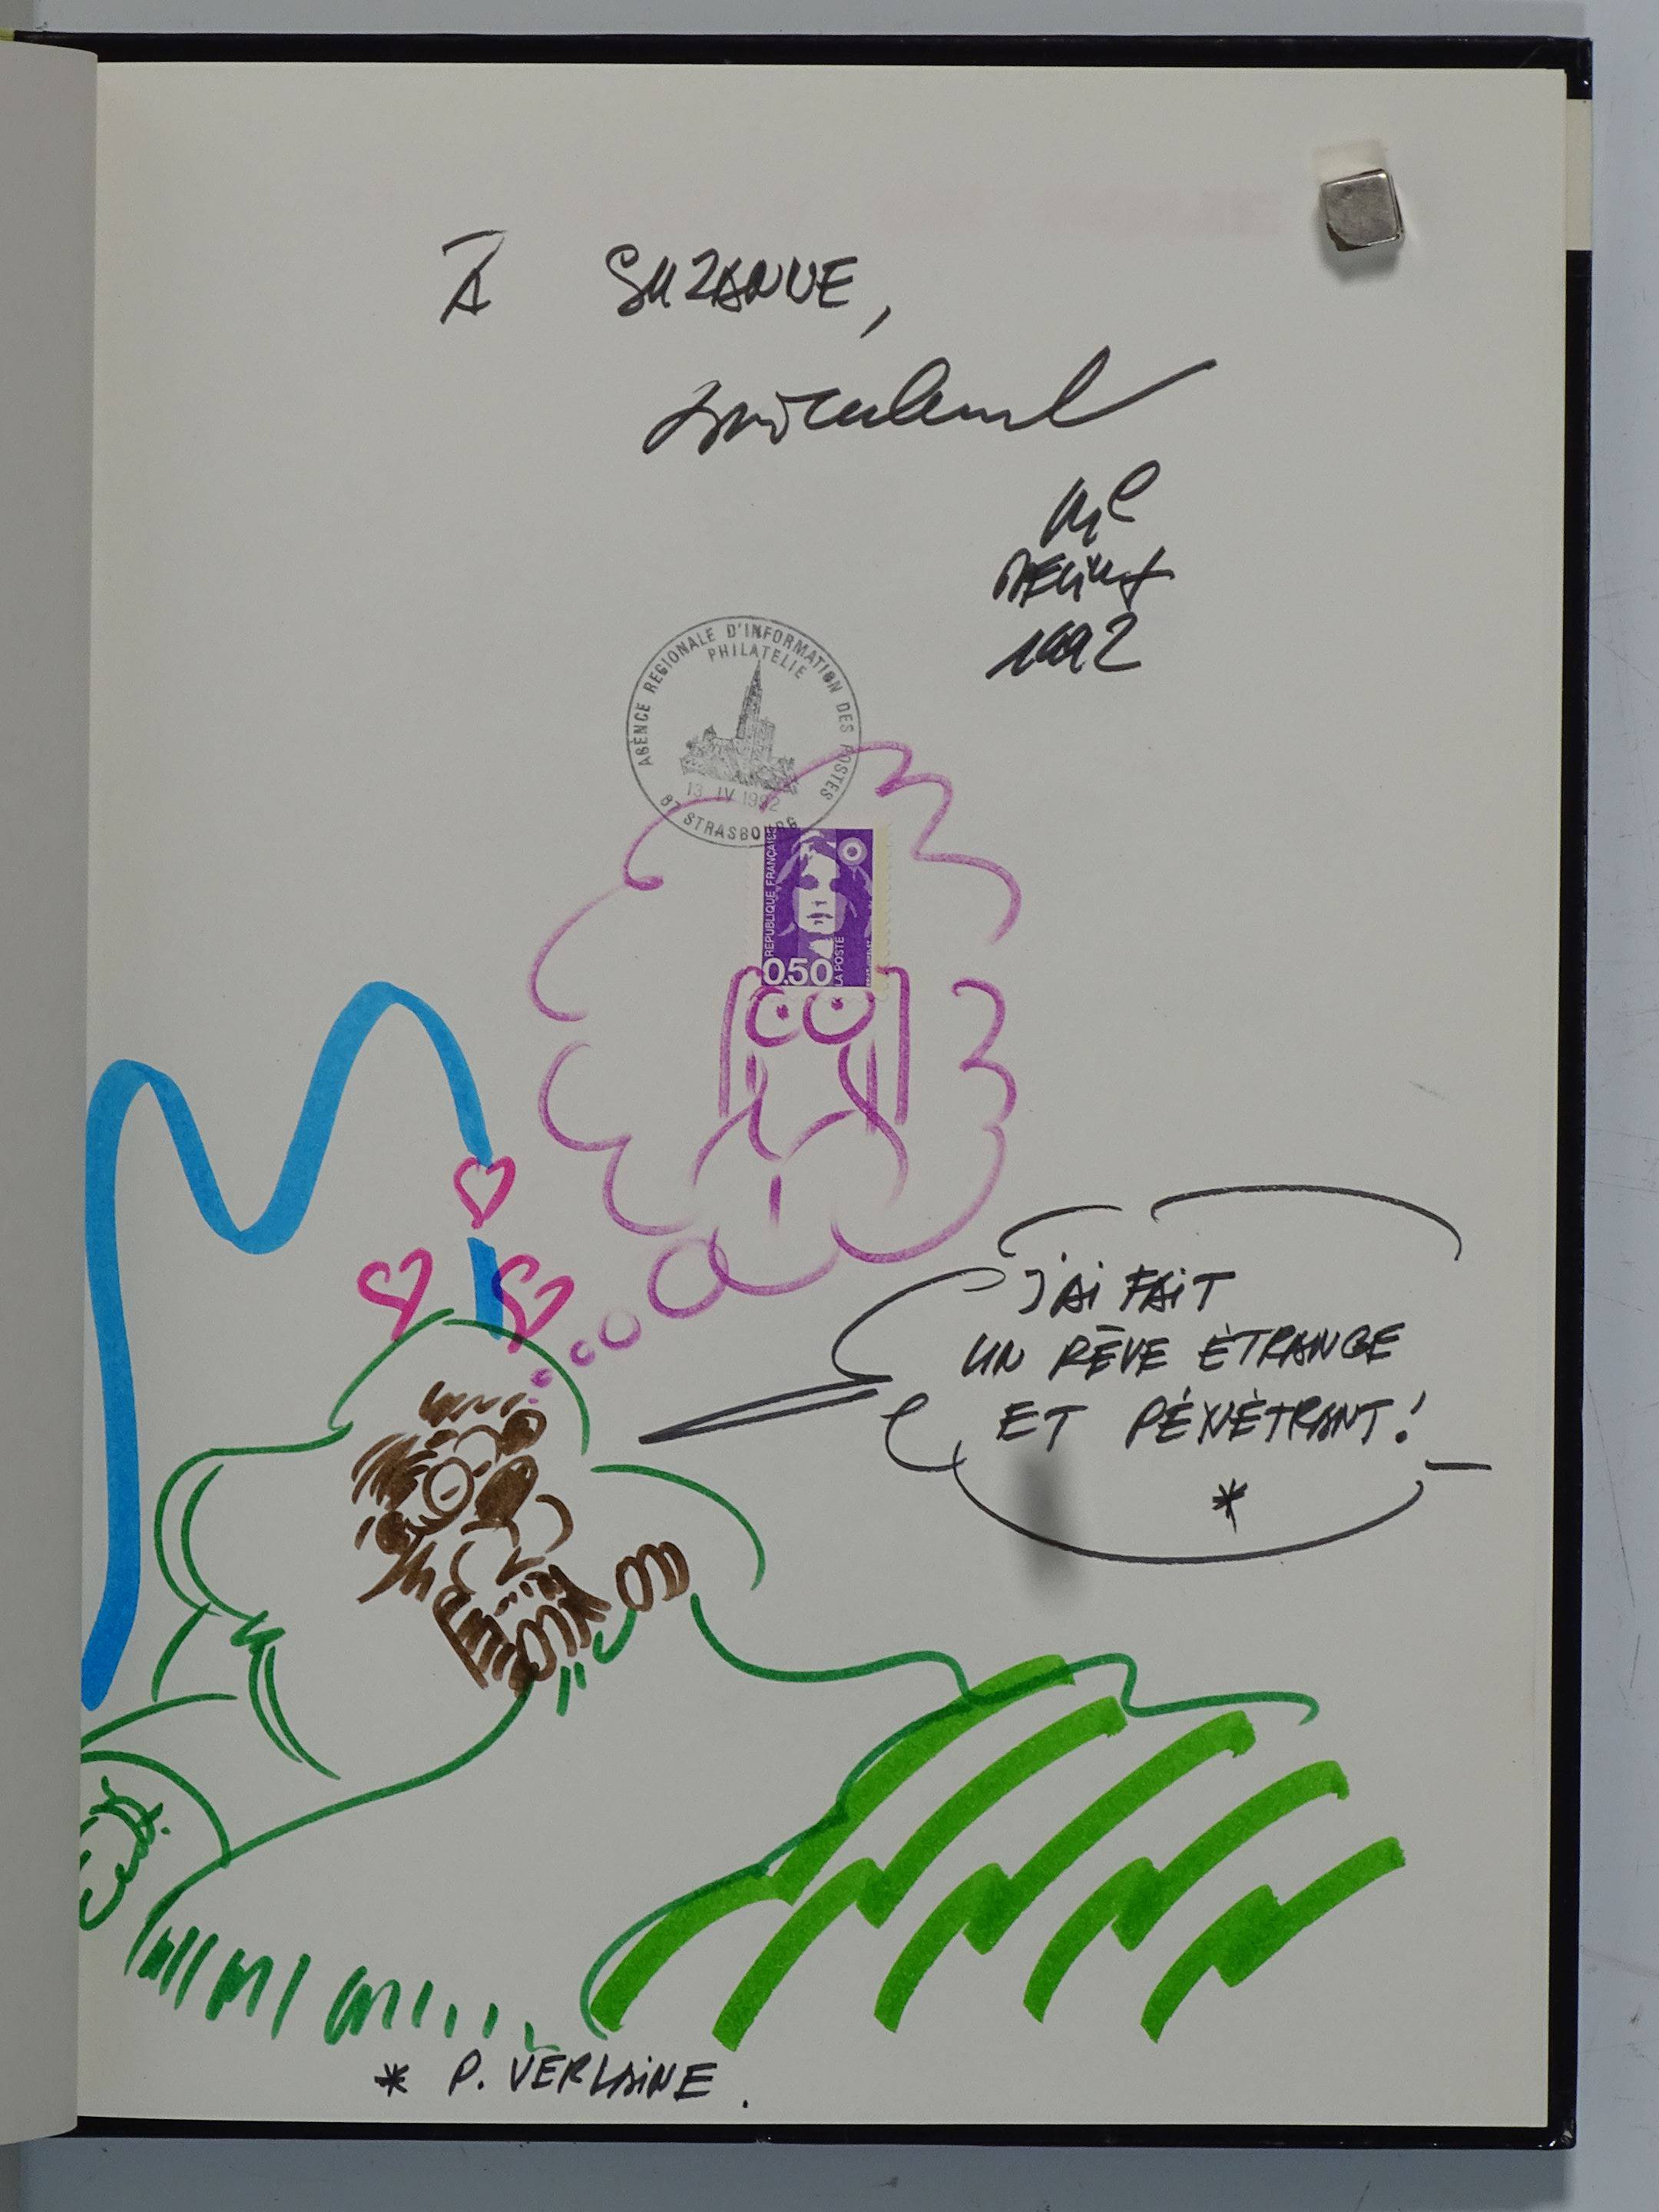 À SUZANNE,
amicalement
1992
AGENCE REGIONALE D'INFORMATION DES POSTES
PHILATELIE
13 IV 1992
67 STRASBOURG
REPUBLIQUE FRANÇAISE
LA POSTE
0,50
J'AI FAIT
UN RÊVE ÉTRANGE
ET PÉNÉTRANT!
*
* P. VERLAINE.